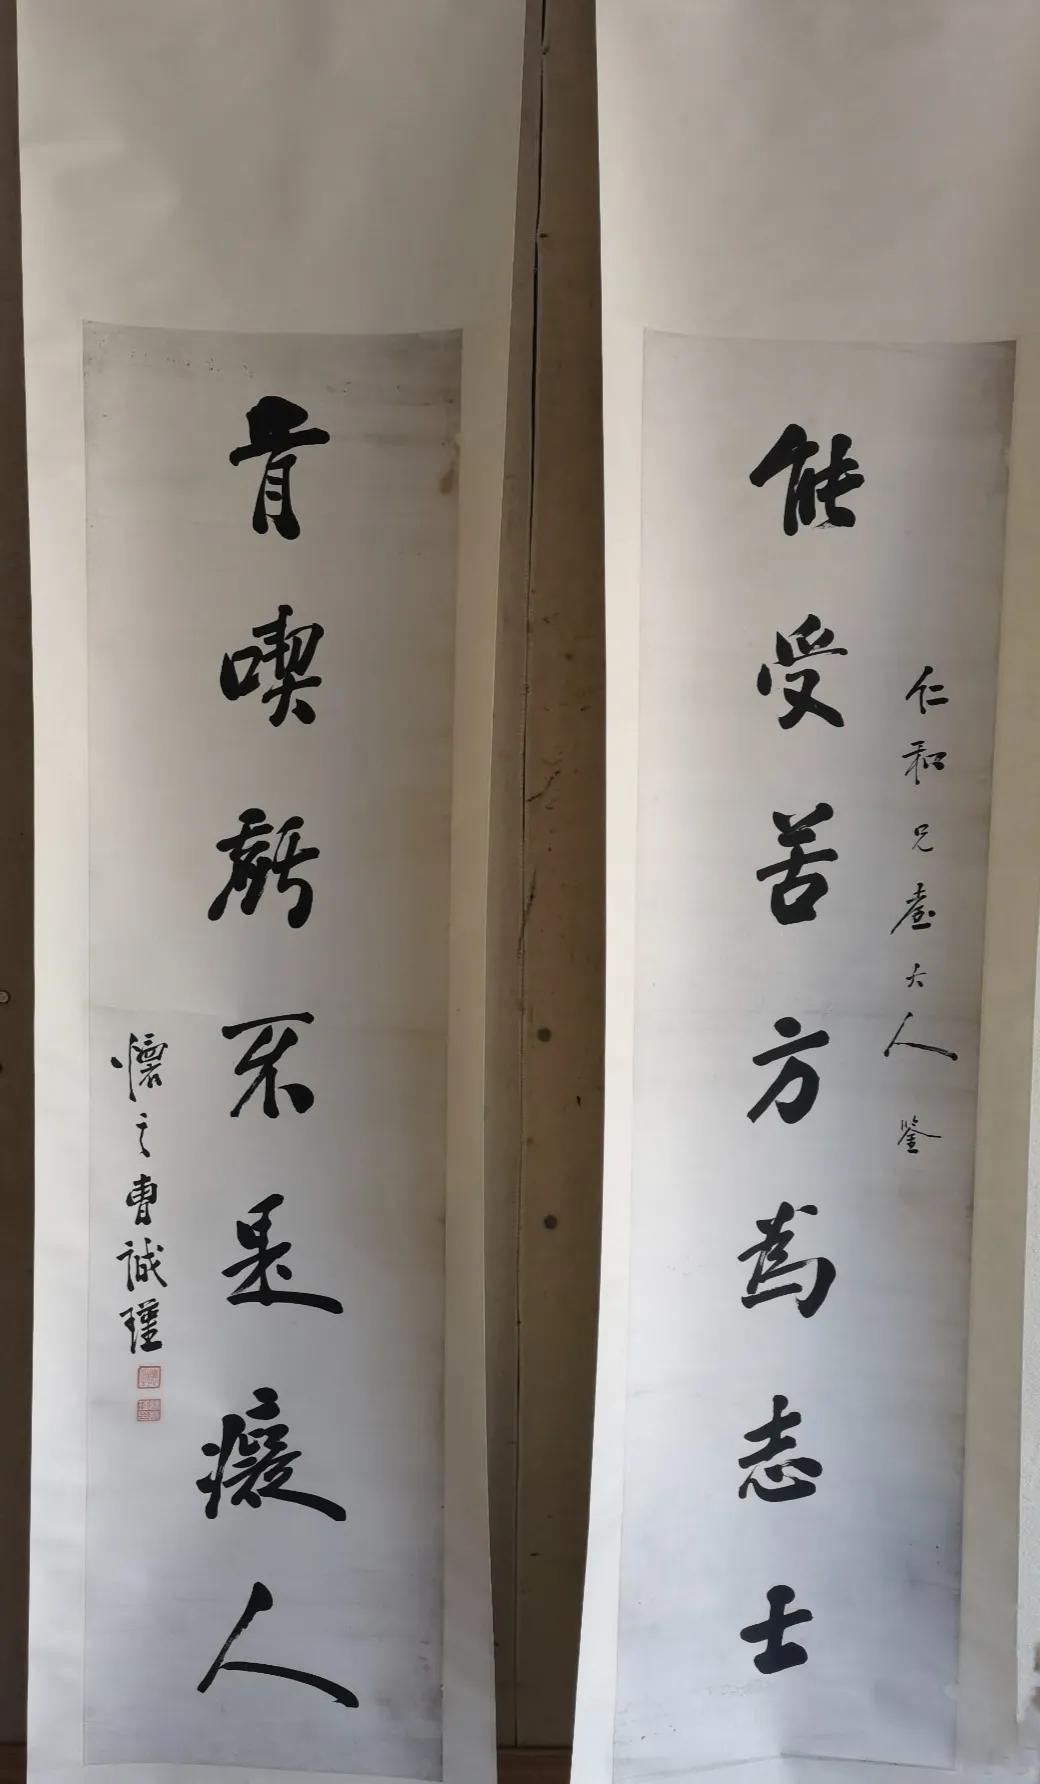 能受苦方為志士
仁和兄臺大人鑒
肯喫虧不是癡人
懷之曹誠瑾